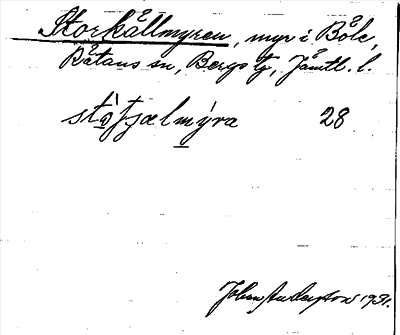 Storkållmyren, myr i Böle,
Rätans sn, Bergs tg, Jämtl. l.
stọ̀tjælmýra 28
Johan Anderson 1931.